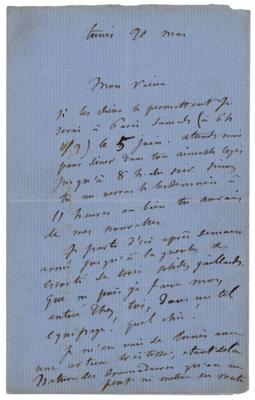 Tunis 20 mai
Mon vieux
Si les dieux le permettent je
serai à Paris samedi (à 6h
1/2) le 5 juin. attends moi
pour dîner dans ton aimable logis
jusqu'à 8 h du soir. sinon
tu me verras le lendemain à
11 heures. ou bien tu auras
de mes nouvelles.
Je pars d'ici après demain
armé jusqu'à la gueule &
escorté de trois gaillards.
que ne puis-je faire mon
entrée chez toi, dans un tel
équipage, quel chic!
Je m'en vais de Tunis avec
une certaine tristesse, étant de la
nature des dromadaires qu'on ne
peut ni mettre en route